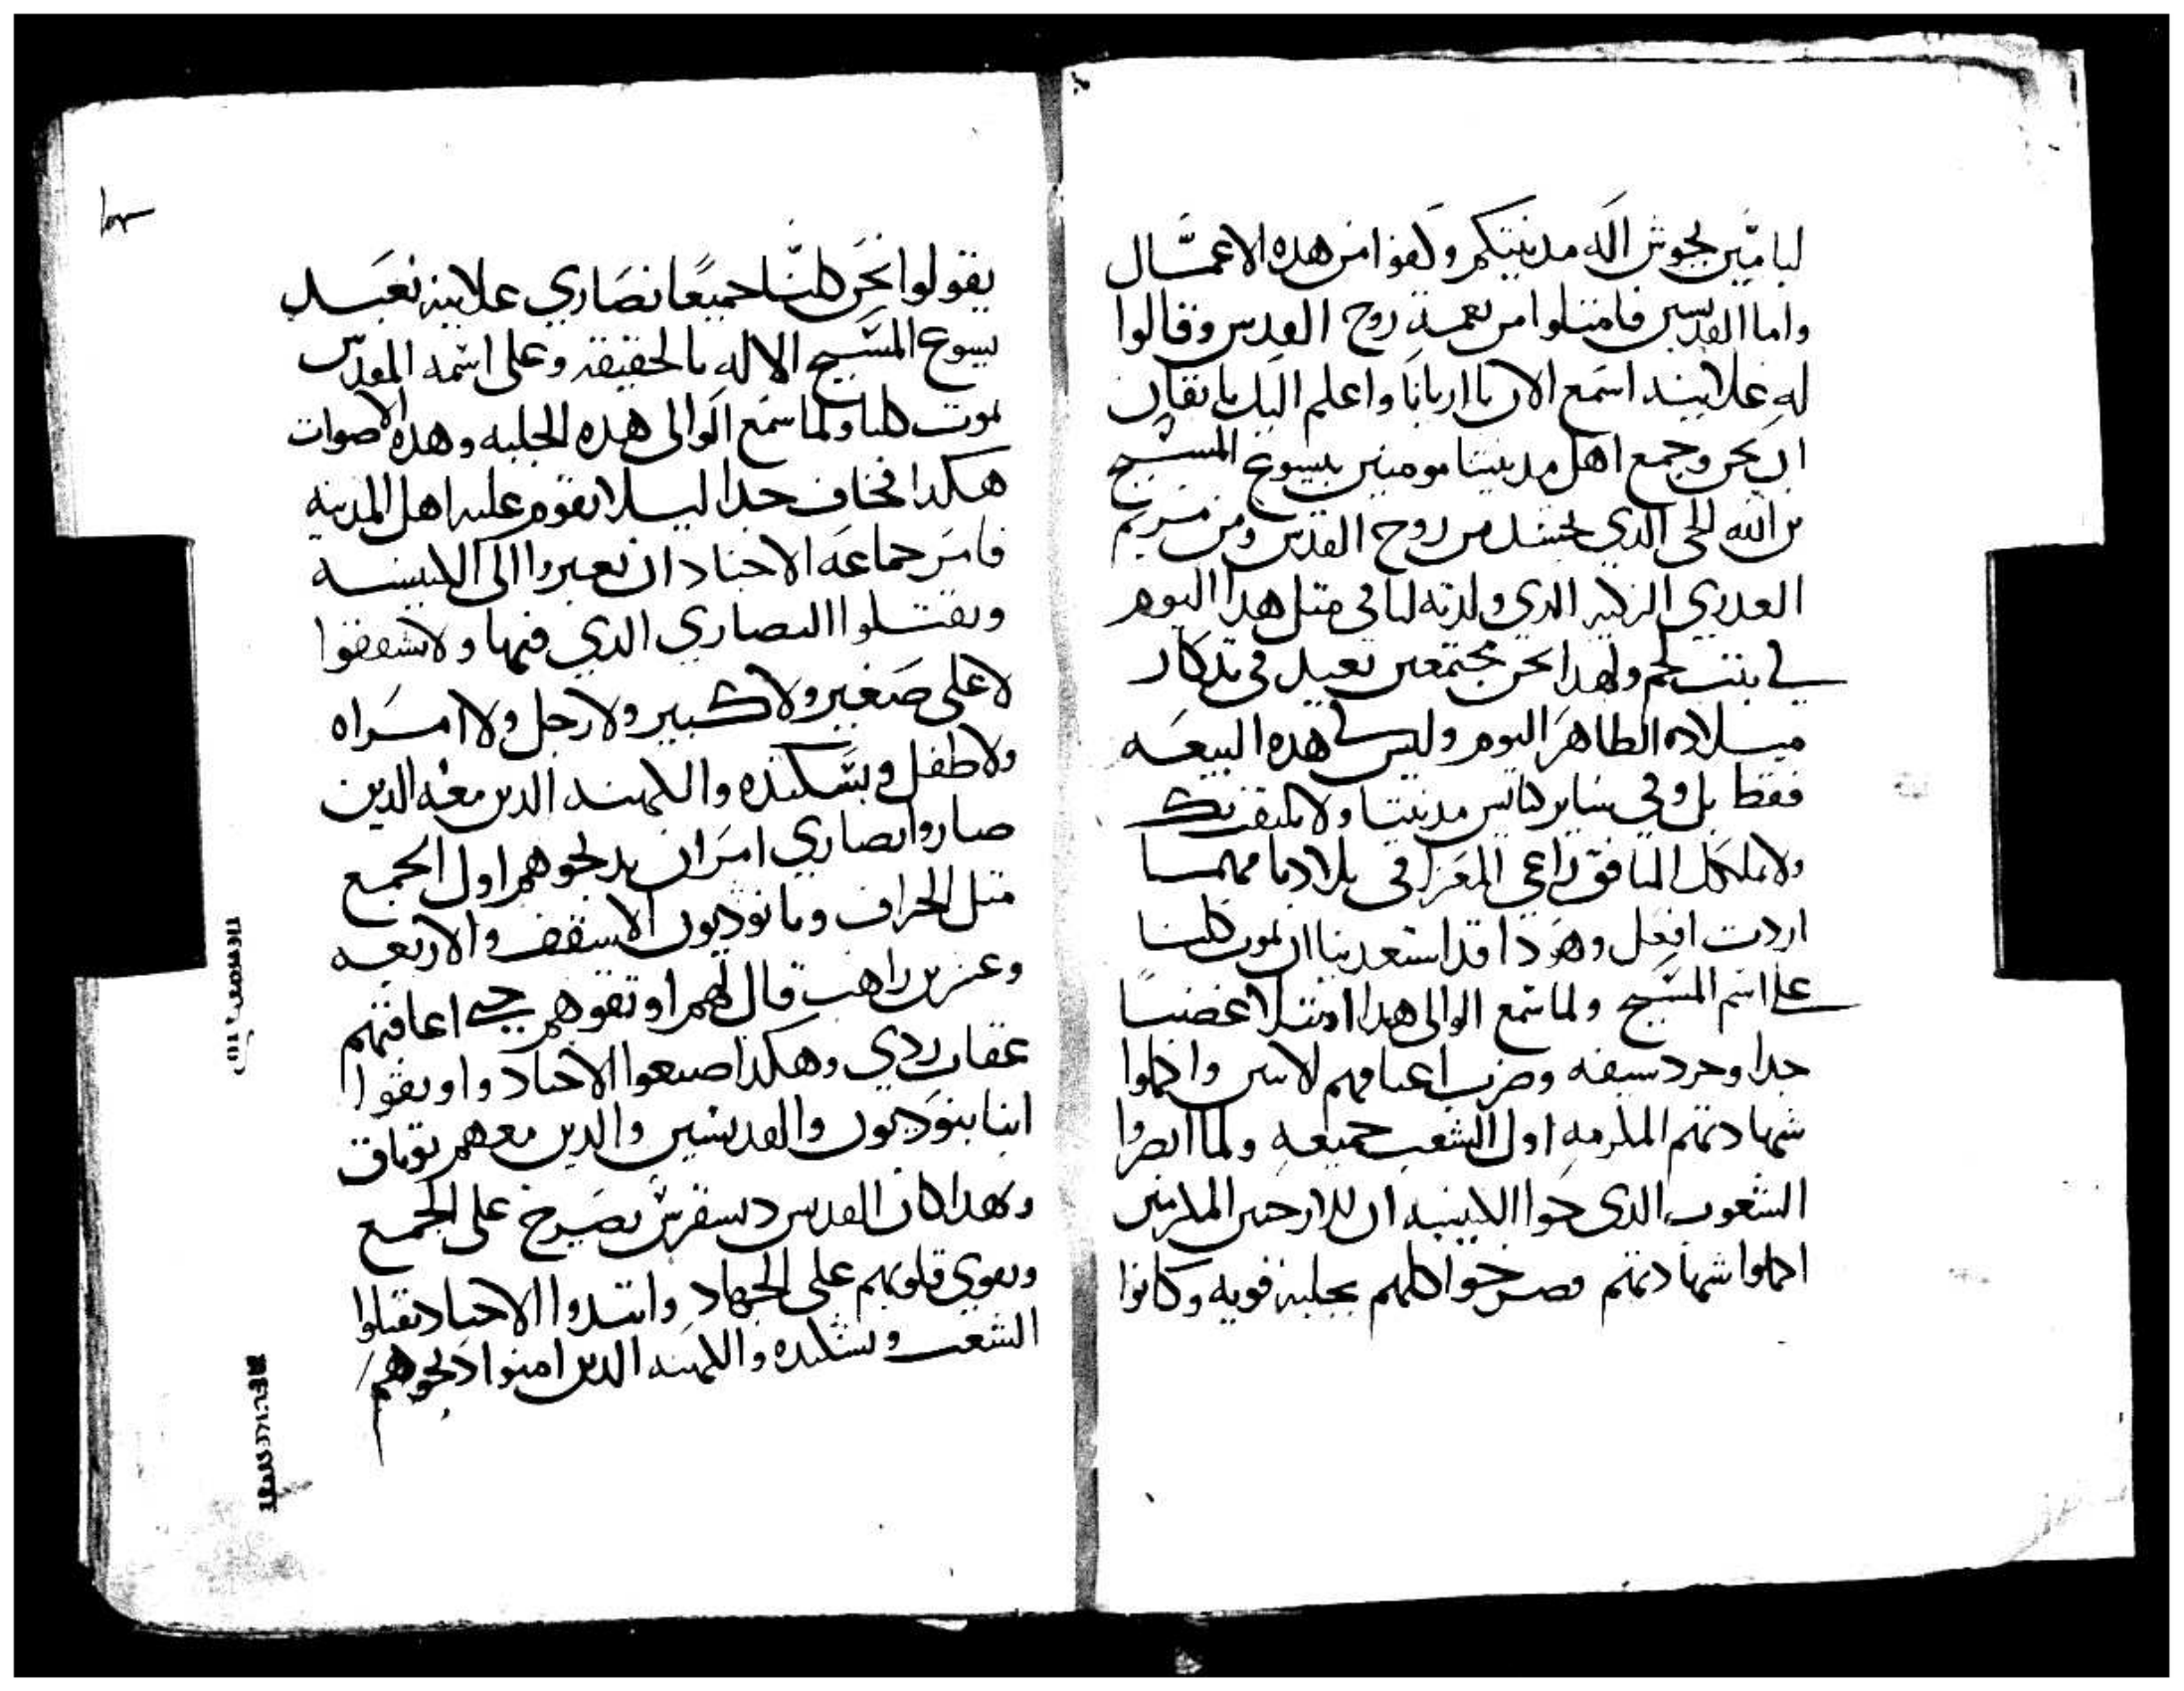 لياميّن لجيوش اله مدينتكم وكفوا من هده الاعمال
واما القديسين فامتلوا من نعمة روح القدس وقالوا
له علانيه اسمع الان يا اريانا واعلم اليك يا نقابن
ان نحن وجميع اهل مدينتنا مومنين بيسوع المسيح
بن الله الحي الدي تجسد من روح القدس ومن مريم
العدري الزكيه الدي ولدته لنا في متل هدا اليوم
في بيت لحم ولهدا نحن مجتمعين نعيد في تدكار
ميلاده الطاهر اليوم وليس في هده البيعه
فقط بل وفي ساير كنايس مدينتنا ولا نلتفت اليك
ولا لملكك المنافق راعي المعزا في بلادنا مهما
اردت افعل وهو دا قد استعدينا ان نموت كلنا
على اسم المسيح ولما سمع الوالي هدا امتلا غضبا
جدا وجرد سيفه وضرب اعناقهم لاتنين واكملوا
شهادتهم المكرمه اول الشعب جميعه ولما ابصروا
الشعوب الدى جوا الكنيسه ان للارجين المكرمين
اكملوا شهادتهم فصرخوا كلهم بجلبه قويه وكانوا
يقولوا نحن كلنا جميعًا نصاري علانيه نعبد
يسوع المسيح الاله بالحقيقه وعلى اسمه المقدس
نموت كلنا ولما سمع الوالى هده الجلبه وهده الاصوات
هكدا فخاف جدا ليلا يقوم عليه اهل المدينه
فامر جماعة الاجناد ان يعبروا الى الكنيسه
ويقتلوا النصاري الدي فيها ولا يشفقوا
لا على صغير ولا كبير ولا رجل ولا امراه
ولا طفل وبسكنده والكهنه الدين معه الدين
صاروا نصاري امر ان يدبحوهم اول الجميع
متل الخراف وبانوديون الاسقف والاربعه
وعشرين راهب قال لهم اوتقوهم حتى اعاقبهم
عقاب ردي وهكدا صنعوا الاجناد واوتقوا
انبا بنوديون والقديسين والدين معهم بوتاق
وهدا كان القديس ديسقرس يصرخ على الجميع
ويقوي قلوبهم على الجهاد وابتدوا الاجناد يقتلوا
الشعب وبسكنده والكهنه الدين امنوا دبحوهم